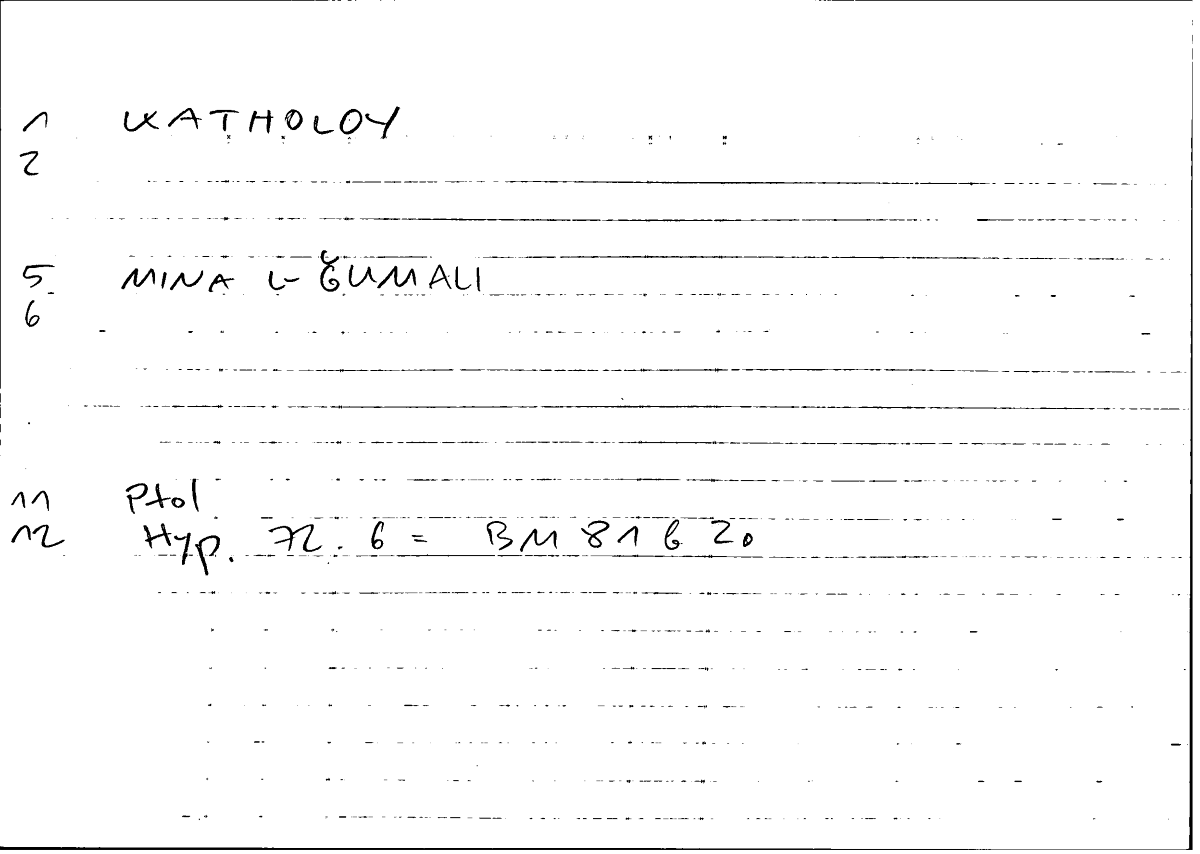 1 KATHOLOY
2
5 MINA L-ǦUMALI
6
11 Ptol
12 Hyp. 72. 6 = BM 81 b 20